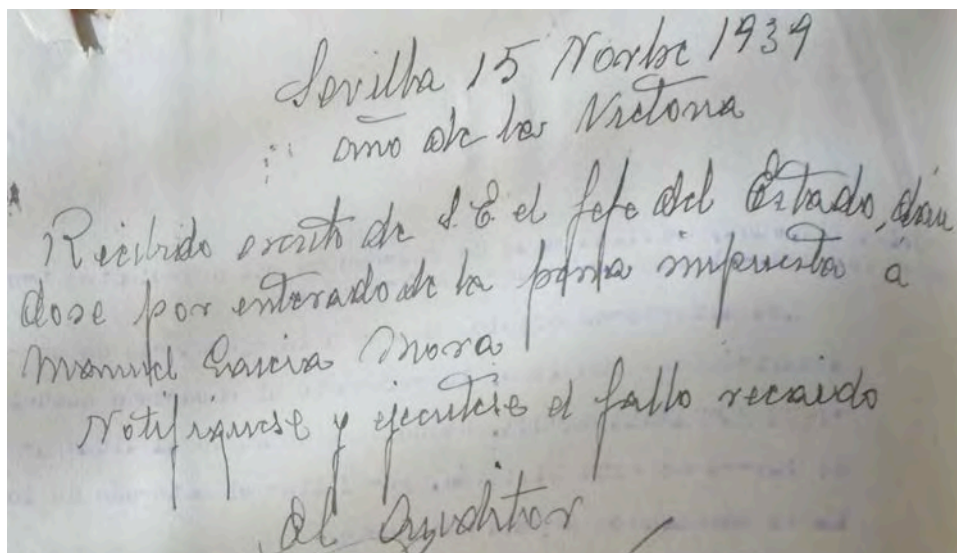 Sevilla 15 Novbre 1939
año de la Victoria
Recibido escrito de S.E. el Jefe del Estado, dán
dose por enterado de la pena impuesta a
Manuel Garcia Mora
Notifiquese y ejecutese el fallo recaido
El Auditor